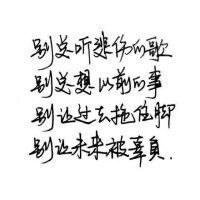 别总听悲伤的歌
别总想以前的事
别让过去拖住脚
别让未来被辜负.